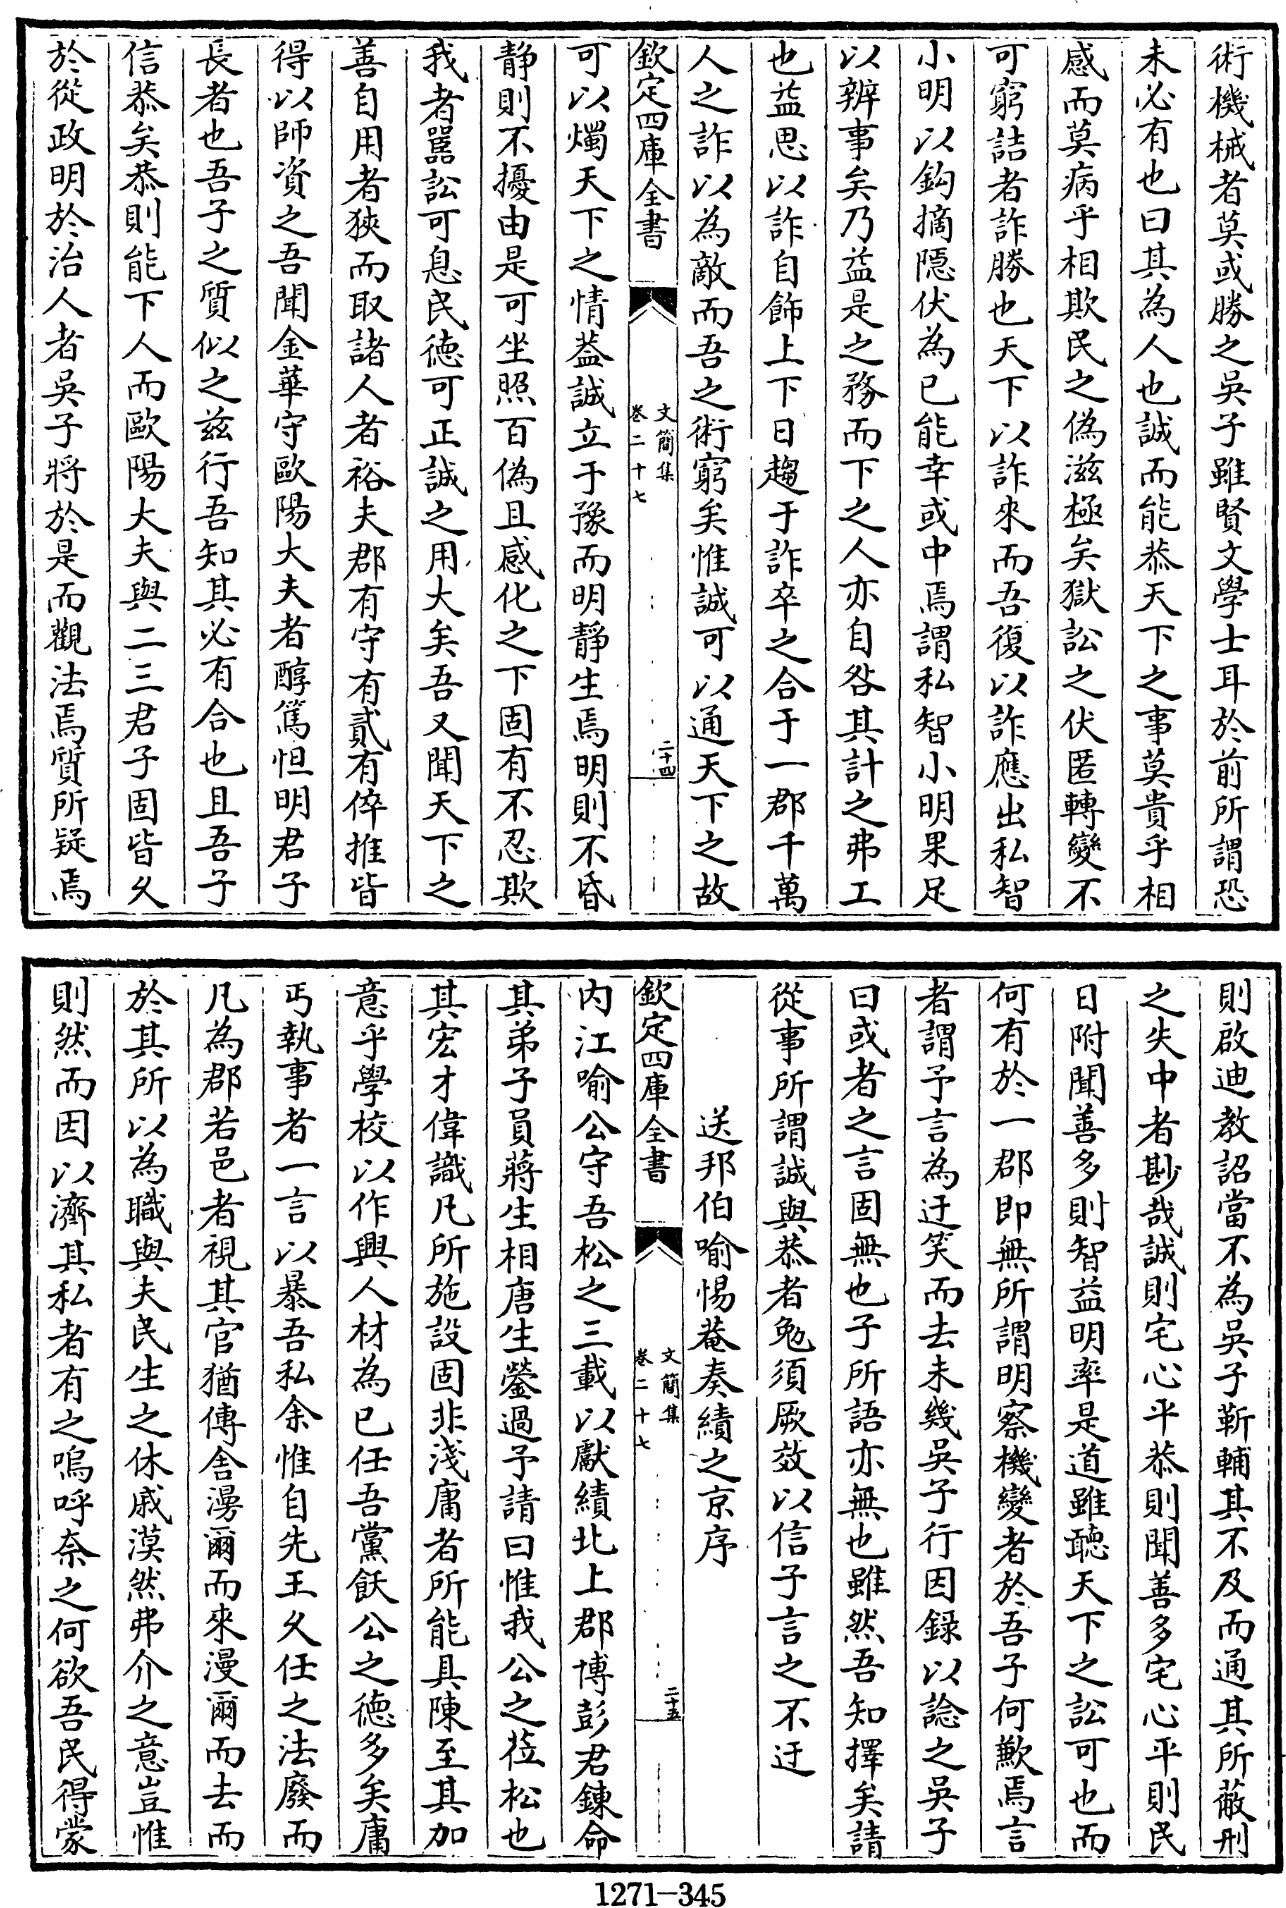 術機械者莫或勝之吳子雖賢文學士耳於前所謂恐
未必有也曰其為人也誠而能恭天下之事莫貴乎相
感而莫病乎相欺民之偽滋極矣獄訟之伏匿轉變不
可窮詰者詐勝也天下以詐來而吾復以詐應出私智
小明以鈎摘隱伏為已能幸或中焉謂私智小明果足
以辨事矣乃益是之務而下之人亦自咎其計之弗工
也益思以詐自飾上下日趨于詐卒之合于一郡千萬
人之詐以為敵而吾之術窮矣惟誠可以通天下之故
欽定四庫全書
文簡集
卷二十七
二十四
可以燭天下之情葢誠立于豫而明靜生焉明則不昏
靜則不擾由是可坐照百偽且感化之下固有不忍欺
我者嚚訟可息民德可正誠之用大矣吾又聞天下之
善自用者狹而取諸人者裕夫郡有守有貳有倅推皆
得以師資之吾聞金華守歐陽大夫者醇篤怛明君子
長者也吾子之質似之兹行吾知其必有合也且吾子
信恭矣恭則能下人而歐陽大夫與二三君子固皆久
於從政明於治人者吳子將於是而觀法焉質所疑焉
則啟迪教詔當不為吳子靳輔其不及而通其所蔽刑
之失中者尠哉誠則宅心平恭則聞善多宅心平則民
日附聞善多則智益明率是道雖聽天下之訟可也而
何有於一郡即無所謂明察機變者於吾子何歉焉言
者謂予言為迂笑而去未幾吳子行因録以諗之吳子
曰或者之言固無也子所語亦無也雖然吾知擇矣請
從事所謂誠與恭者勉須厥效以信子言之不迂
送邦伯喻惕菴奏績之京序
欽定四庫全書
文簡集
卷二十七
二十五
内江喻公守吾松之三載以獻績北上郡博彭君鍊命
其弟子員蔣生相唐生鎣過予請曰惟我公之莅松也
其宏才偉識凡所施設固非淺庸者所能具陳至其加
意乎學校以作興人材為已任吾黨飫公之德多矣庸
丐執事者一言以暴吾私余惟自先王久任之法廢而
凡為郡若邑者視其官猶傳舍漫爾而來漫爾而去而
於其所以為職與夫民生之休戚漠然弗介之意豈惟
則然而因以濟其私者有之嗚呼奈之何欲吾民得蒙
1271-345